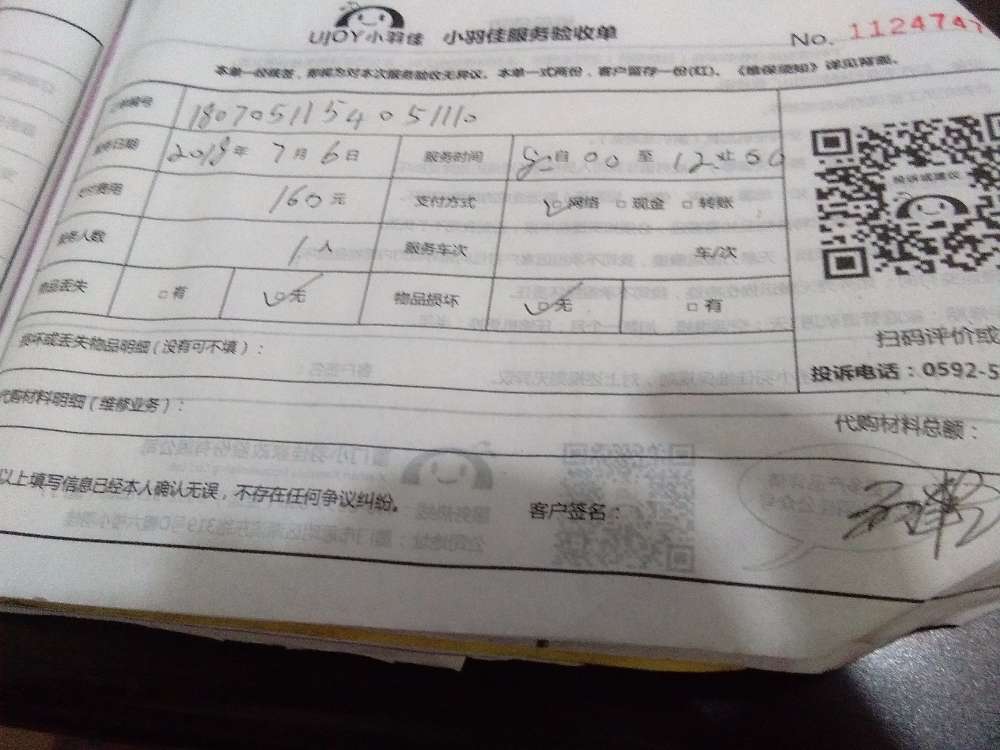 UJOY小羽佳 小羽佳服务验收单
No. 1124747
本单一经核签，即视为对本次服务验收无异议。本单一式两份，客户留存一份(红)。《维保须知》详见背面。
编号 1807051154051110
日期 2018年 7月 6日 服务时间 自 00 至 12 50
费用 160元 支付方式 ☑网络 □现金 □转账
服务人数 1人 服务车次 车/次
物品丢失 □有 ☑无 物品损坏 ☑无 □有
投诉或建议
扫码评价或
投诉电话：0592-5
损坏或丢失物品明细（没有可不填）：
代购材料明细（维修业务）：
代购材料总额：
以上填写信息已经本人确认无误，不存在任何争议纠纷。
客户签名：